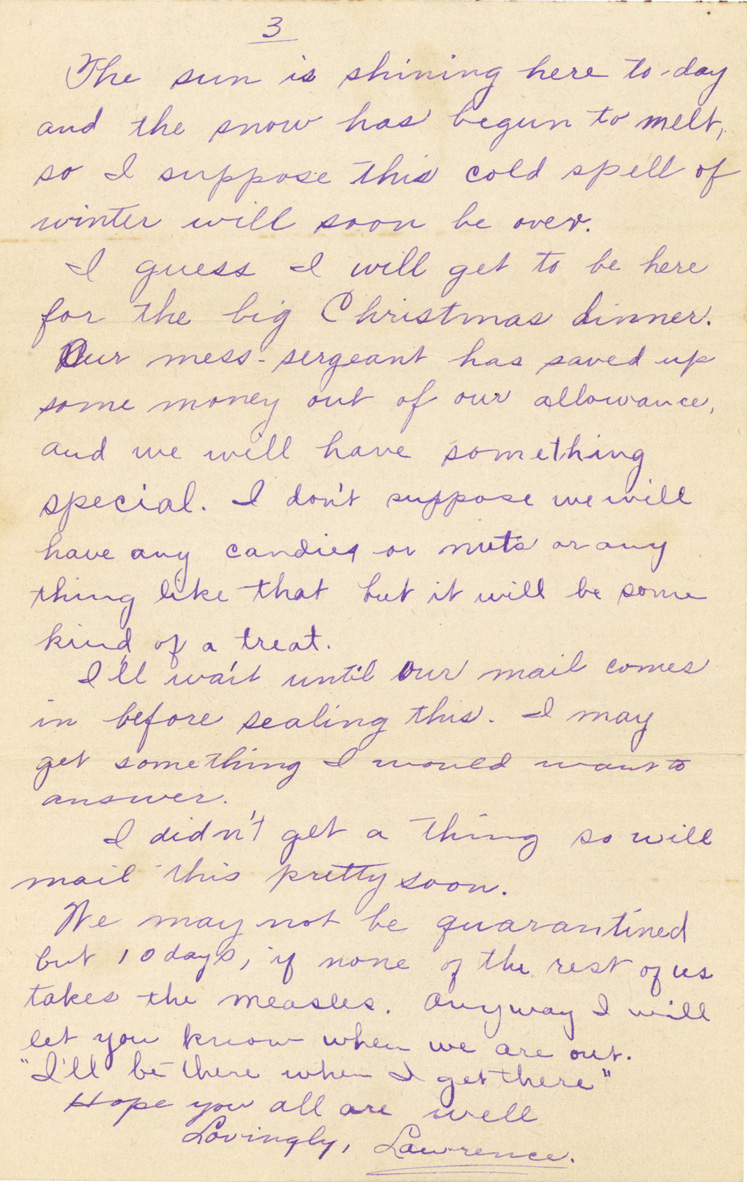 3
The sun is shining here to-day
and the snow has begun to melt,
so I suppose this cold spell of
winter will soon be over.
I guess I will get to be here
for the big Christmas dinner.
Our mess-sergeant has saved up
some money out of our allowance,
and we will have something
special. I don't suppose we will
have any candies or nuts or any
thing like that but it will be some
kind of a treat.
I'll wait until our mail comes
in before sealing this. I may
get something I would want to
answer.
I didn't get a thing so will
mail this pretty soon.
We may not be quarantined
but 10 days, if none of the rest of us
takes the measles. Anyway I will
let you know when we are out.
"I'll be there when I get there"
Hope you all are well
Lovingly, Lawrence.